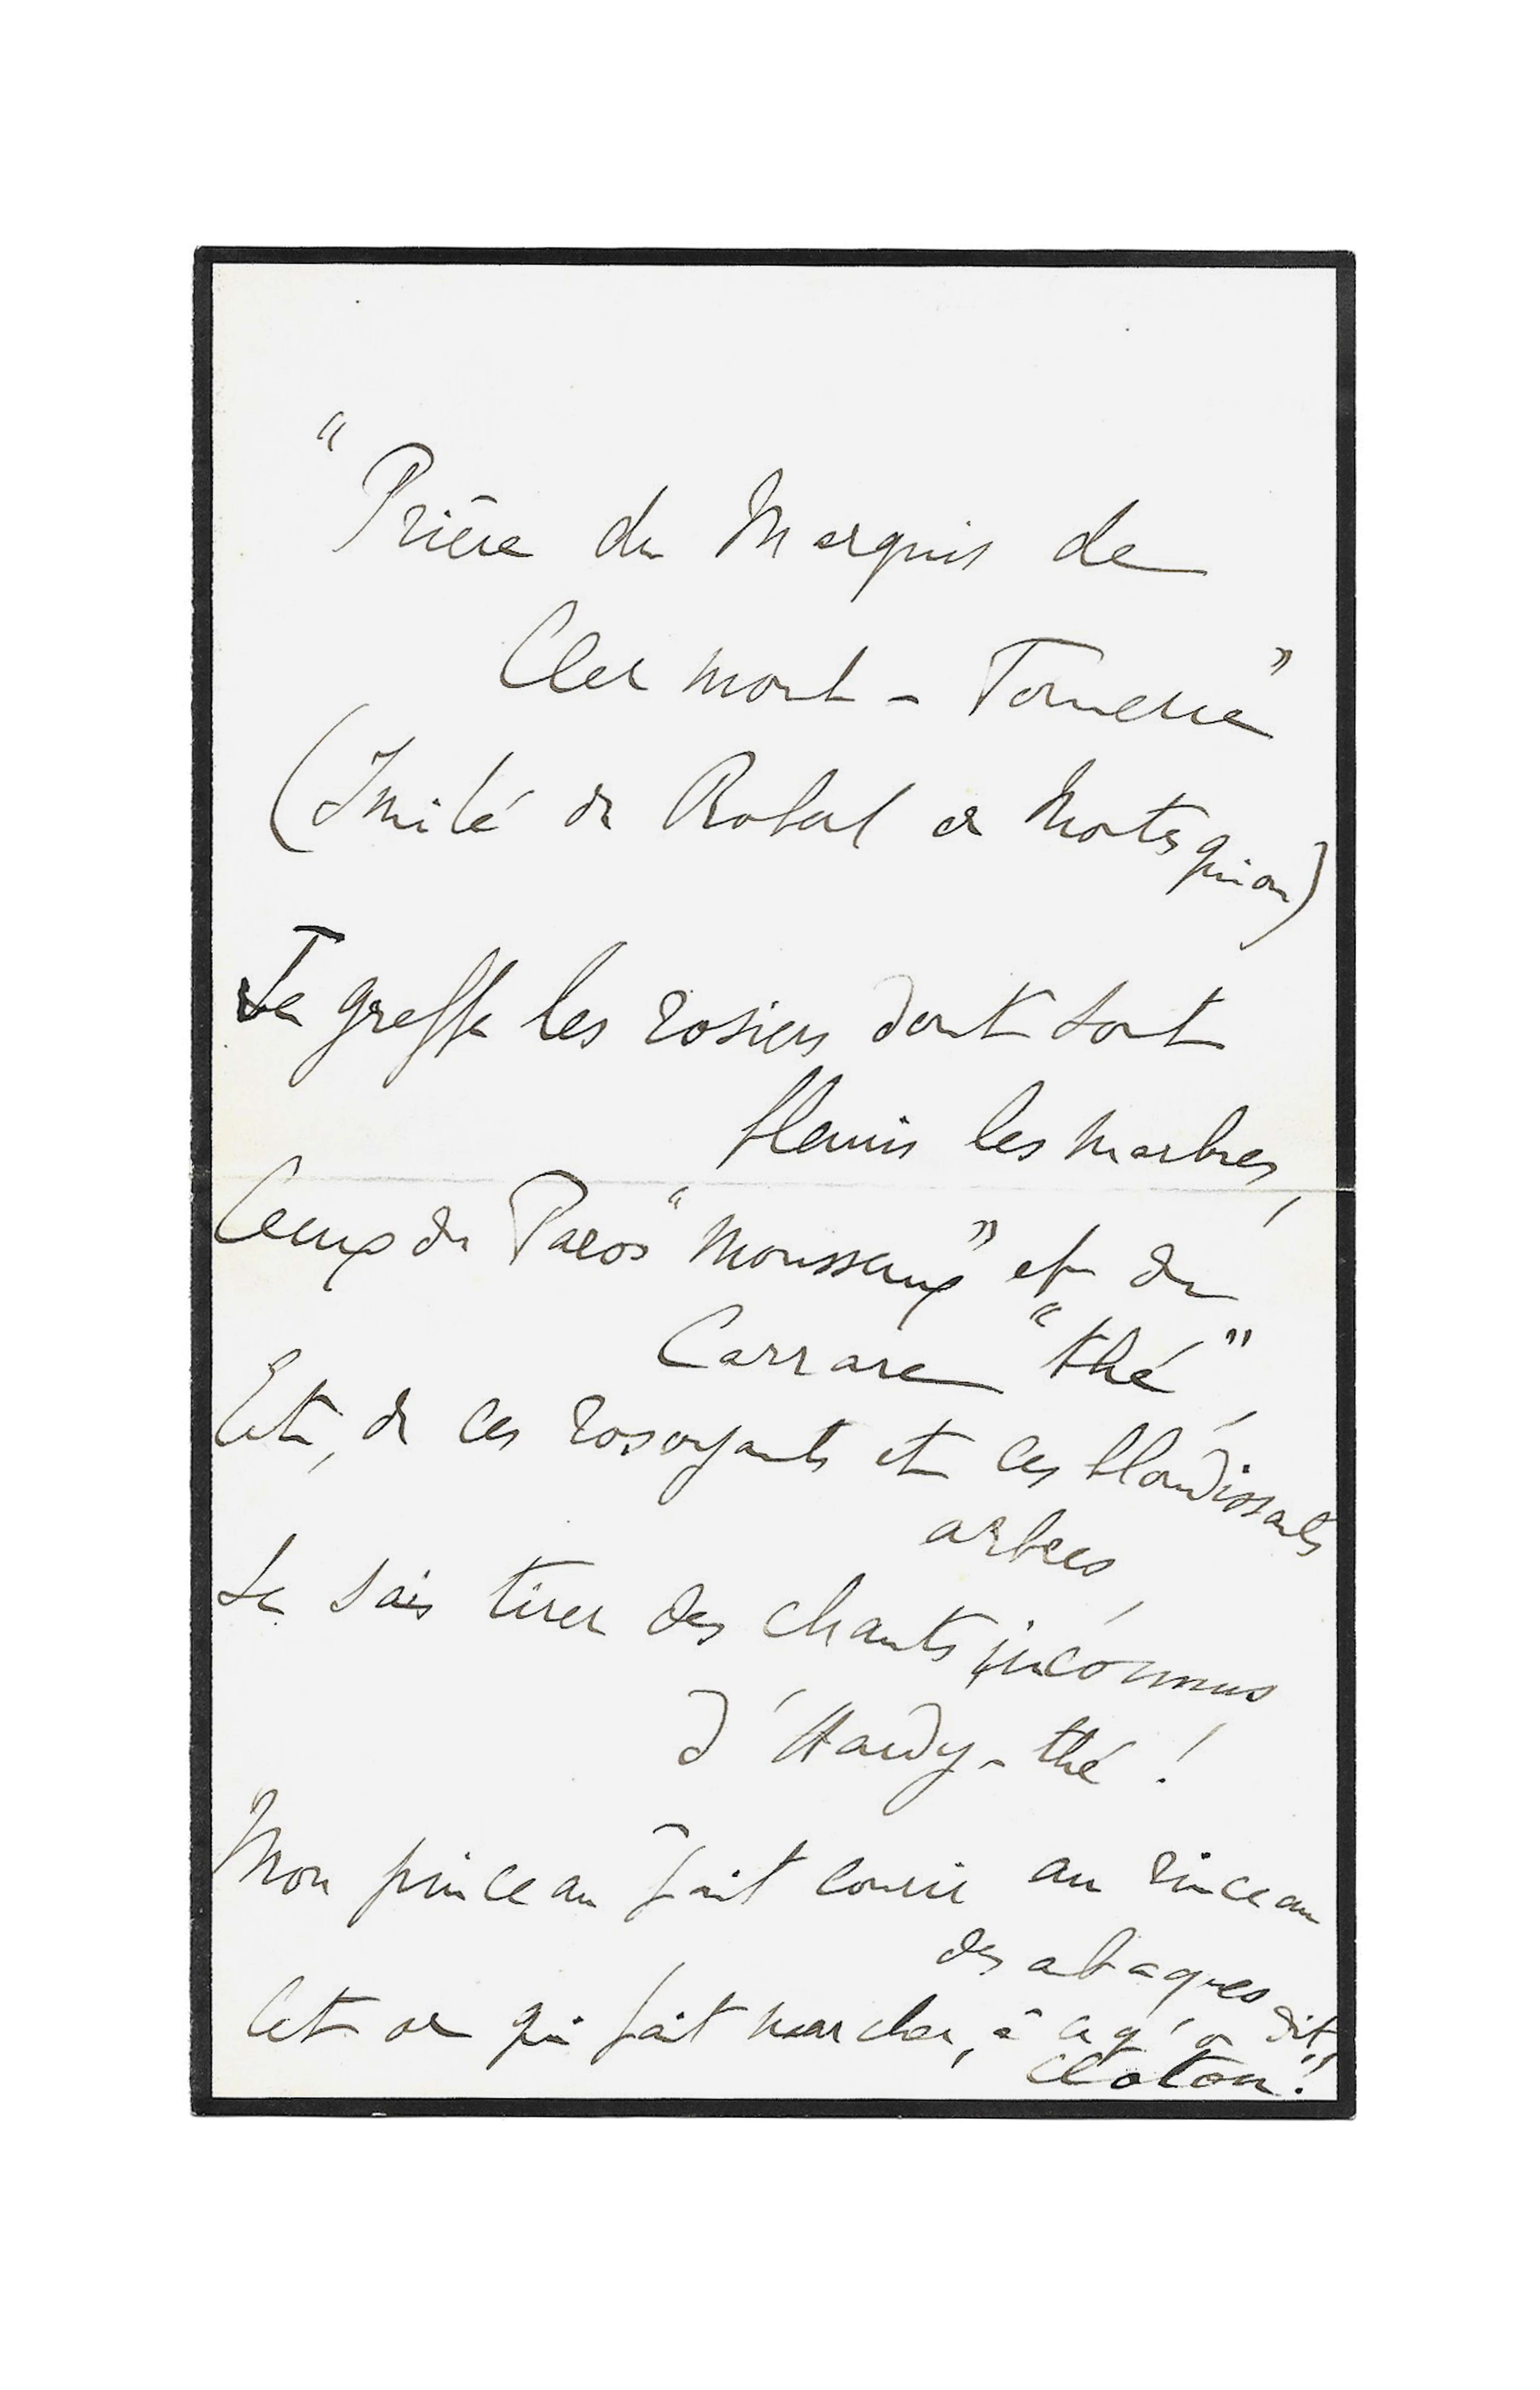 "Prière du Marquis de
Clermont-Tonnerre"
(Imité de Robert de Montesquiou)
Je greffe les rosiers dont sont
fleuris les marbres,
Ceux du Paros "Mousseux" et du
Carrare "thé",
Et, de ces rosoyants et ces blondissants
arbres,
Je sais tirer des chants inconnus
d'Hardy-thé !
Mon pinceau fait courir au rinceau
des abaques
Cet or qui fait marcher, à ce qu'on dit,
"Cloton!"